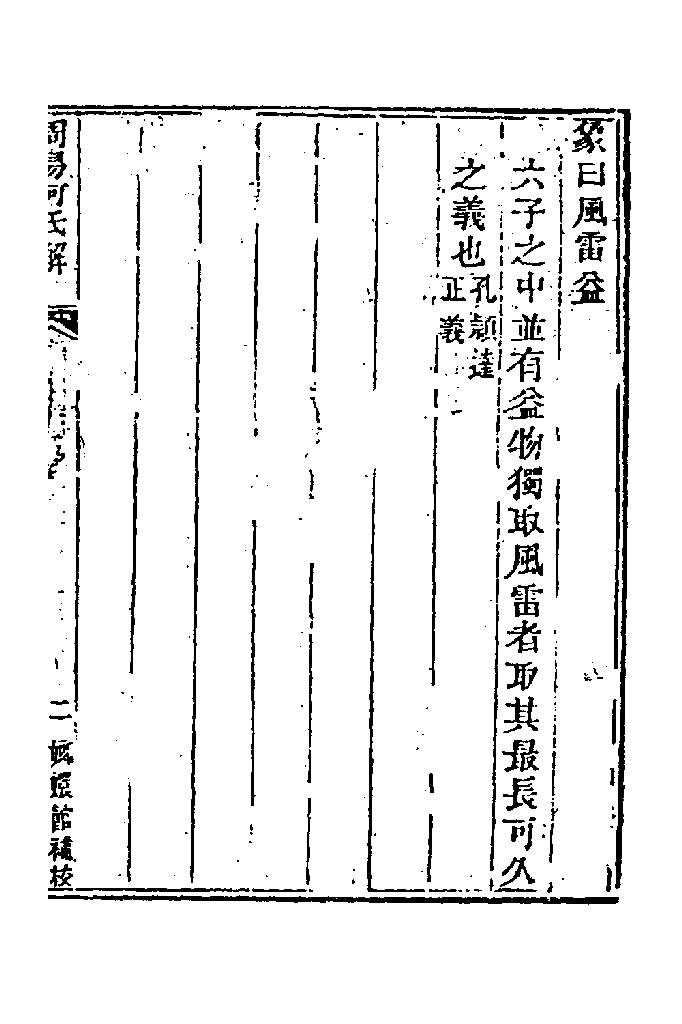 象曰風雷益
六子之中並有益物獨取風雷者取其最長可久
之義也孔頴達
正義
周易何氏解
二
嫏嬛館補校